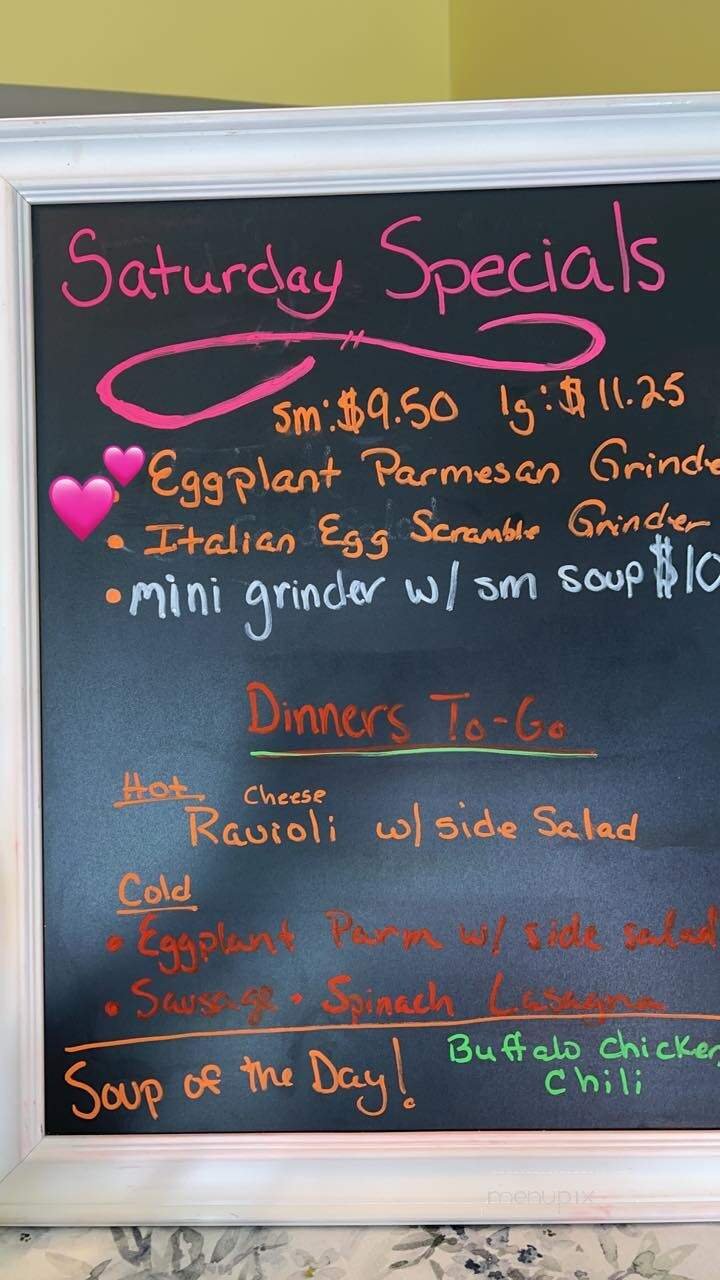 Saturday Specials
sm:$9.50 lg:$11.25
• Eggplant Parmesan Grinde
• Italian Egg Scramble Grinder
• mini grinder w/ sm soup $10
Dinners To-Go
Hot Cheese
Ravioli w/ side Salad
Cold
• Eggplant Parm w/ side salad
• Sausage • Spinach Lasagna
Soup of the Day! Buffalo Chicken
Chili
menupix